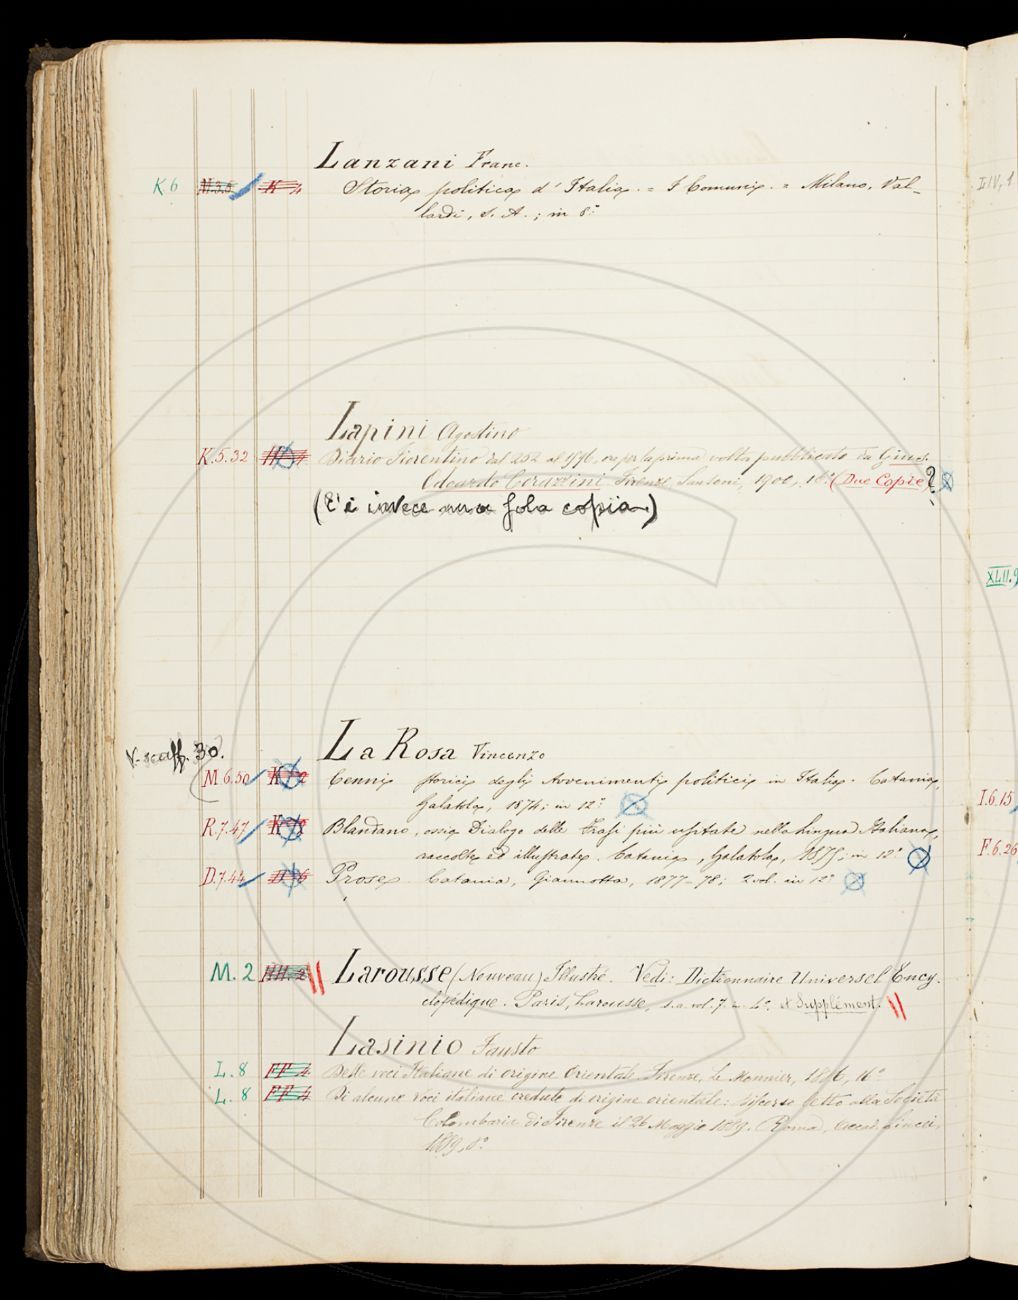 Lanzani Franc.
K 6 Storia politica d' Italia. = I Comuni. = Milano, Val-
lardi, s. A.; in 8.°
Lapini Agostino
K.5.32 Diario Fiorentino dal 252 al 1596, ora per la prima volta pubblicato da Gius.
Odoardo Corazzini Firenze Sansoni, 1900, 18° (Due Copie)?
(C'è invece una sola copia)
La Rosa Vincenzo
V. scaff. 30.
M.6.50 Cenni storici degli Avvenimenti politici in Italia. Catania,
Galatola, 1874; in 12°
R.7.47 Blandano, ossia Dialogo delle frasi più usitate nella lingua Italiana,
raccolte ed illustrate. Catania, Galatola, 1875; in 12°
D.7.44 Prose Catania, Giannotta, 1877-78; 2 vol. in 12°
M. 2 Larousse (Nouveau) Illustré. Vedi: Dictionnaire Universel Ency.
clopédique. Paris, Larousse, s. a. vol. 7. in 4°. et Supplément.
Lasinio Fausto
L. 8 Delle voci Italiane di origine Orientale. Firenze, Le Monnier, 16°
L. 8 Di alcune voci italiane credute di origine orientale: discorso letto alla Società
Colombaria di Firenze il 26 Maggio 1889. (Roma, Accad. Lincei,
1889, 8°
I.6.15
F.6.26